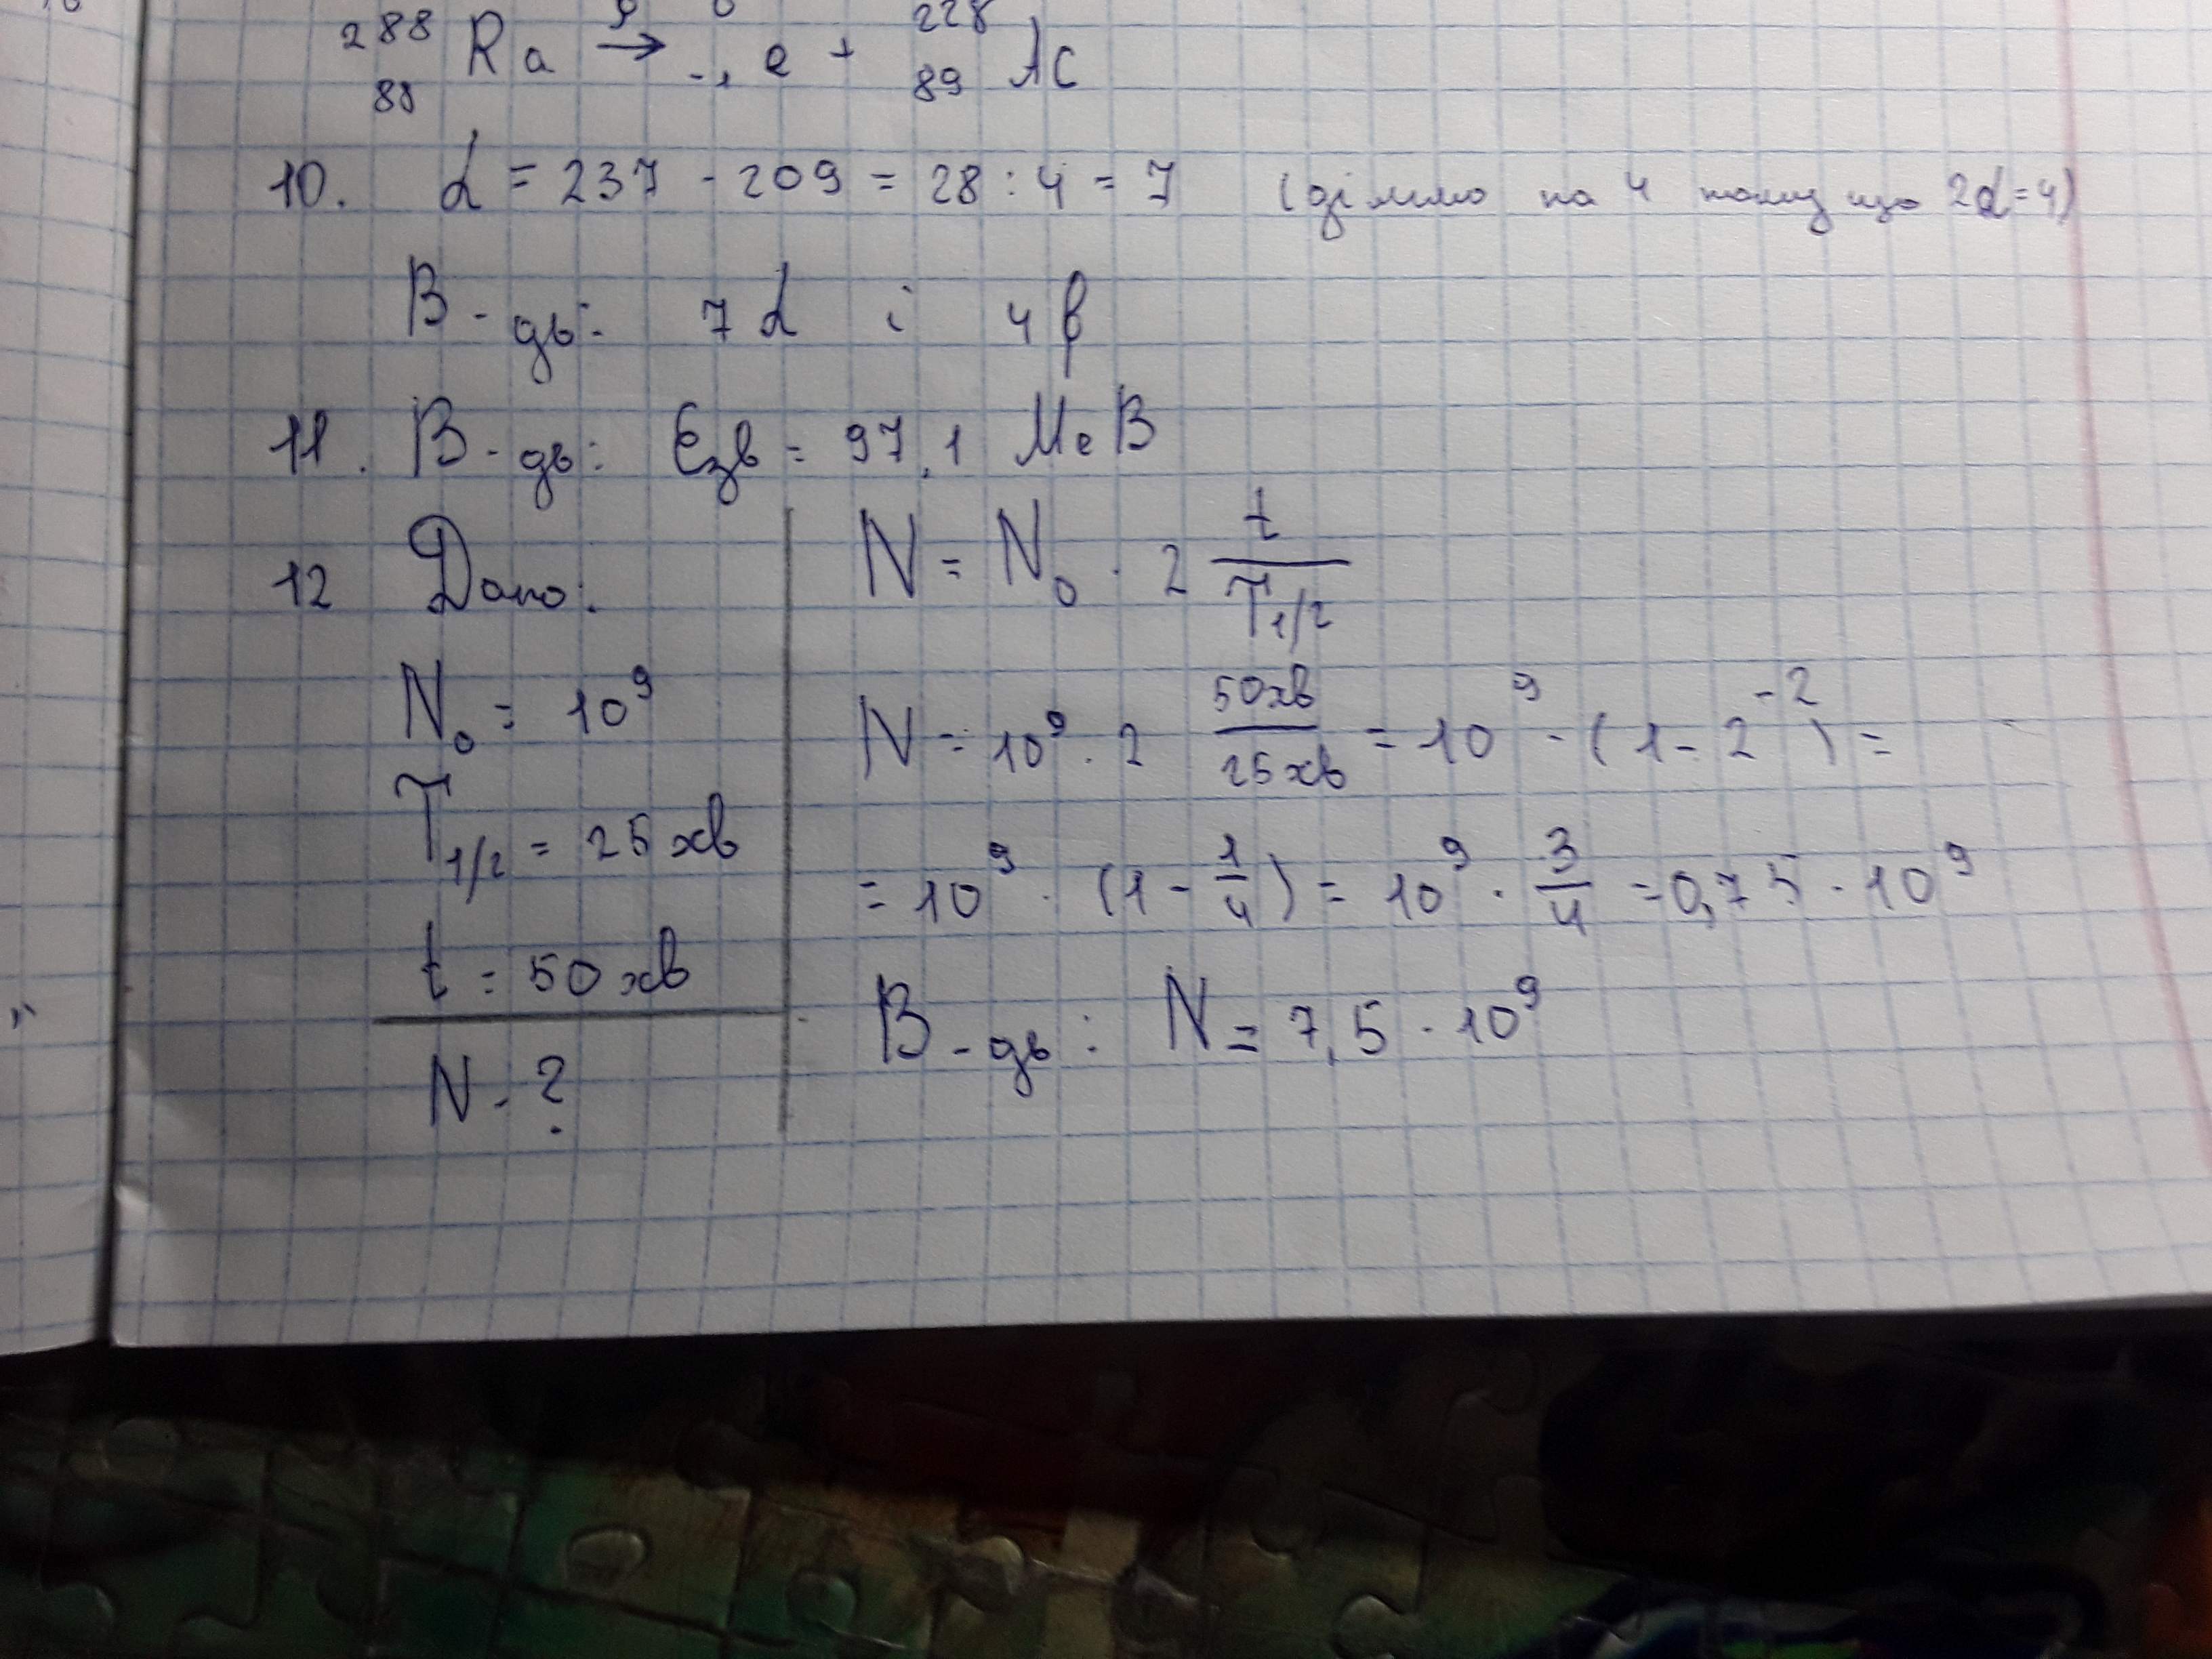 288 88 Ra β→ 0 -1 e + 228 89 Ac
10. α = 237 - 209 = 28 : 4 = 7 (ділимо на 4 тому що 2α=4)
В-дь: 7α і 4β
11. В-дь: Eзв = 97,1 МеВ
12 Дано:
N₀ = 10⁹
T1/2 = 25 хв
t = 50 хв
N - ?
N = N₀ · 2 t/T1/2
N = 10⁹ · 2 50хв/25хв = 10⁹ · (1 - 2⁻²) =
= 10⁹ · (1 - 1/4) = 10⁹ · 3/4 = 0,75 · 10⁹
В-дь: N = 7,5 · 10⁹